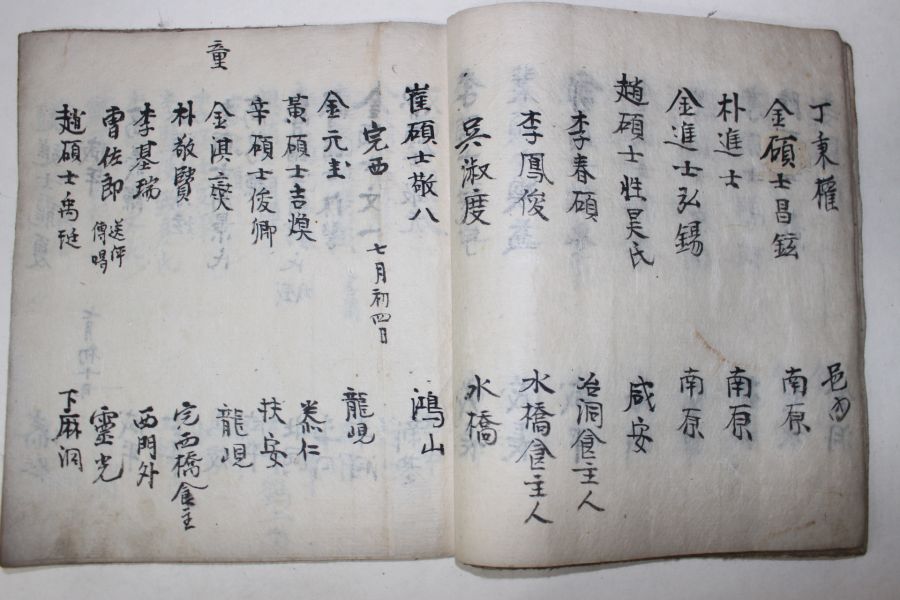 丁東權 邑內
金碩士昌鉉 南原
朴進士 南原
金進士弘錫 南原
趙碩士性昊氏 咸安
李春碩 冶洞食主人
李鳳俊 水橋食主人
吳淑度 水橋
崔碩士敬八 鴻山
完西 七月初四日
金元圭 龍峴
黃碩士吉煥 泰仁
辛碩士俊卿 扶安
童 金淇 龍峴
朴敬賢 完西橋食主
李基瑞 西門外
曺佐郎 送伻傳喝 靈光
趙碩士禹 下麻洞